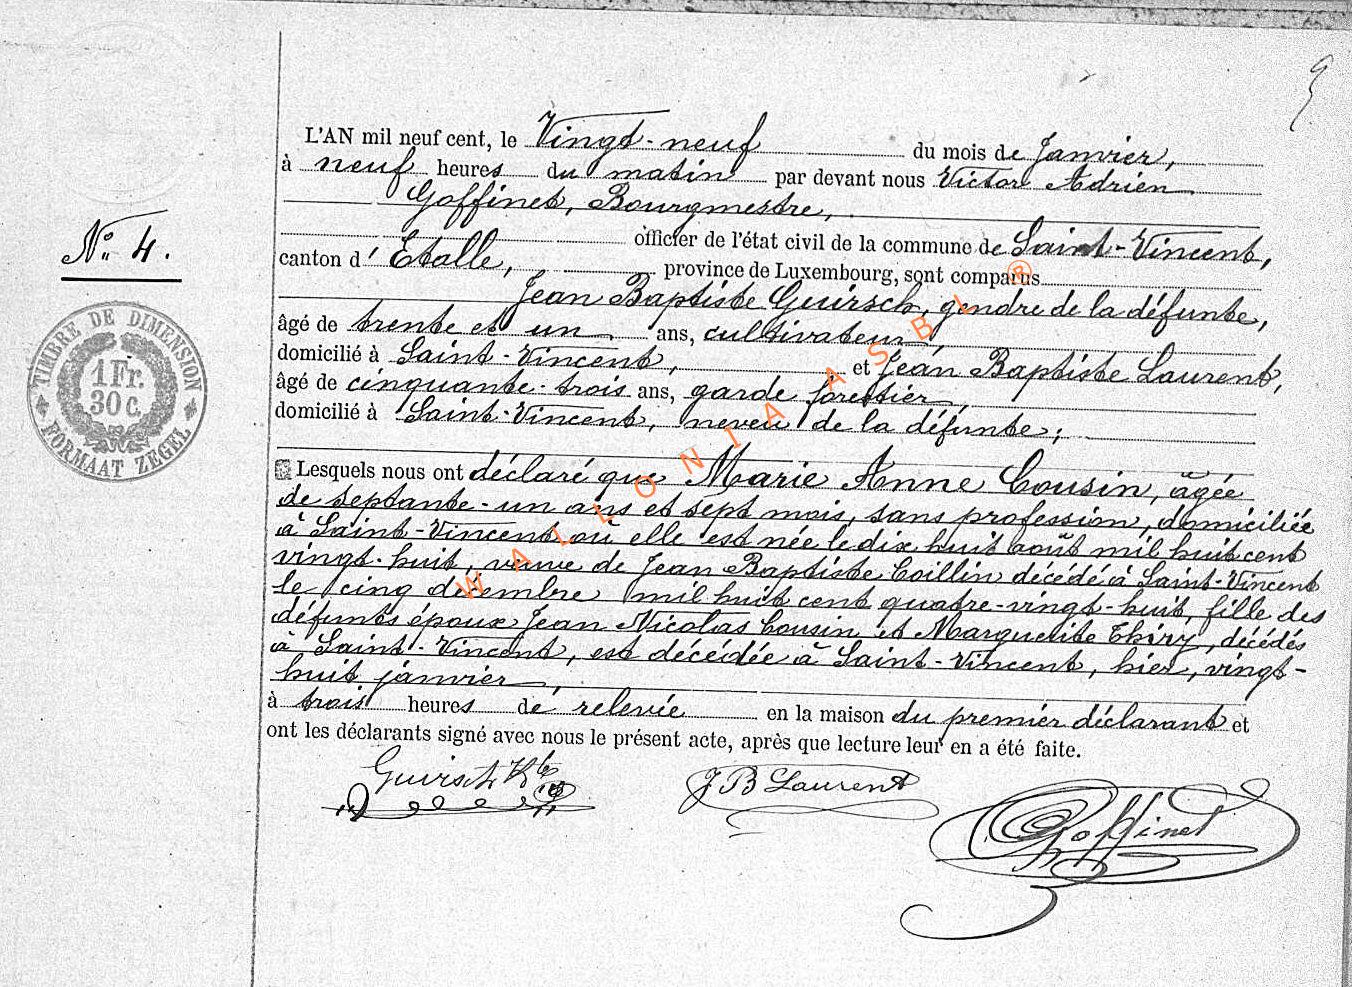 9
L'AN mil neuf cent, le Vingt-neuf du mois de Janvier,
à neuf heures du matin par devant nous Victor Adrien
Goffinet, Bourgmestre,
officier de l'état civil de la commune de Saint-Vincent,
canton d' Etalle, province de Luxembourg, sont comparus
Jean Baptiste Guirsch, gendre de la défunte,
âgé de trente et un ans, cultivateur,
domicilié à Saint-Vincent, et Jean Baptiste Laurent,
âgé de cinquante-trois ans, garde forestier,
domicilié à Saint-Vincent, neveu de la défunte;
Lesquels nous ont déclaré que Marie Anne Cousin, âgée
de septante-un ans et sept mois, sans profession, domiciliée
à Saint-Vincent où elle est née le dix huit août mil huit cent
vingt-huit, veuve de Jean Baptiste Coillin décédé à Saint-Vincent
le cinq décembre mil huit cent quatre-vingt-huit, fille des
défunts époux Jean Nicolas Cousin et Marguerite Thiry, décédés
à Saint-Vincent, est décédée à Saint-Vincent, hier, vingt-
huit janvier,
à trois heures de relevée en la maison du premier déclarant et
ont les déclarants signé avec nous le présent acte, après que lecture leur en a été faite.
Guirsch JBte
J B Laurent
Goffinet
N° 4.
TIMBRE DE DIMENSION
1 Fr.
30 c.
FORMAAT ZEGEL
WALLONIA ASBL ®